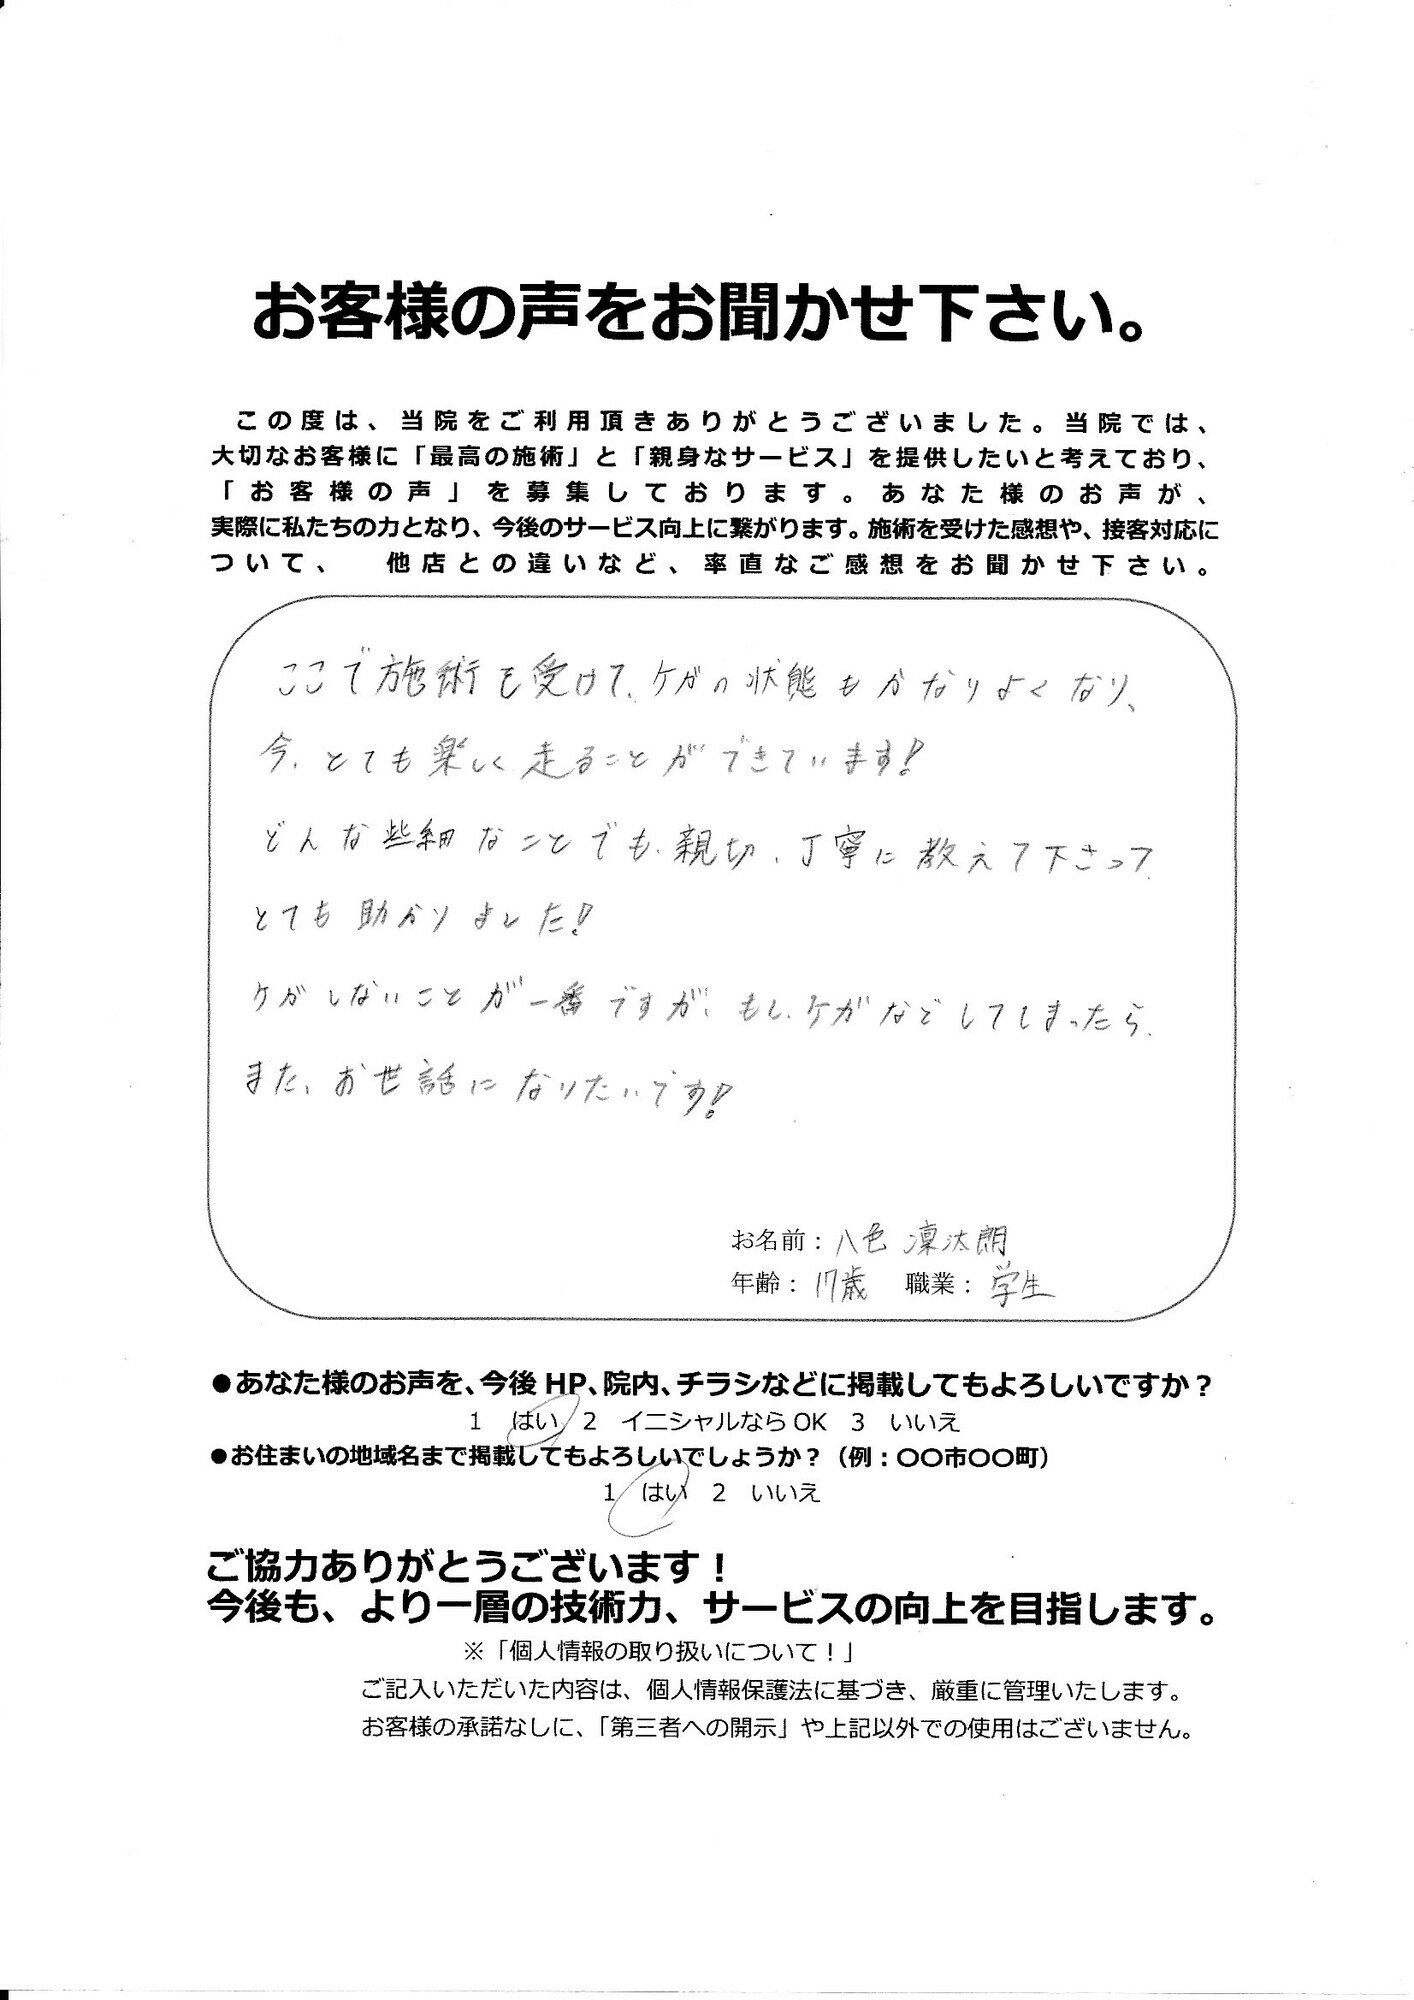 お客様の声をお聞かせ下さい。
この度は、当院をご利用頂きありがとうございました。当院では、
大切なお客様に「最高の施術」と「親身なサービス」を提供したいと考えており、
「お客様の声」を募集しております。あなた様のお声が、
実際に私たちの力となり、今後のサービス向上に繋がります。施術を受けた感想や、接客対応に
ついて、　他店との違いなど、率直なご感想をお聞かせ下さい。
ここで施術を受けて、ケガの状態もかなりよくなり、
今、とても楽しく走ることができています!
どんな些細なことでも、親切、丁寧に教えて下さって、
とても助かりました!
ケガしないことが一番ですが、もし、ケガなどしてしまったら、
また、お世話になりたいです!
お名前：八色 凜汰朗
年齢：17歳　職業：学生
●あなた様のお声を、今後 HP、院内、チラシなどに掲載してもよろしいですか？
1　はい　2　イニシャルなら OK　3　いいえ
●お住まいの地域名まで掲載してもよろしいでしょうか？（例：〇〇市〇〇町）
1　はい　2　いいえ
ご協力ありがとうございます！
今後も、より一層の技術力、サービスの向上を目指します。
※「個人情報の取り扱いについて！」
ご記入いただいた内容は、個人情報保護法に基づき、厳重に管理いたします。
お客様の承諾なしに、「第三者への開示」や上記以外での使用はございません。